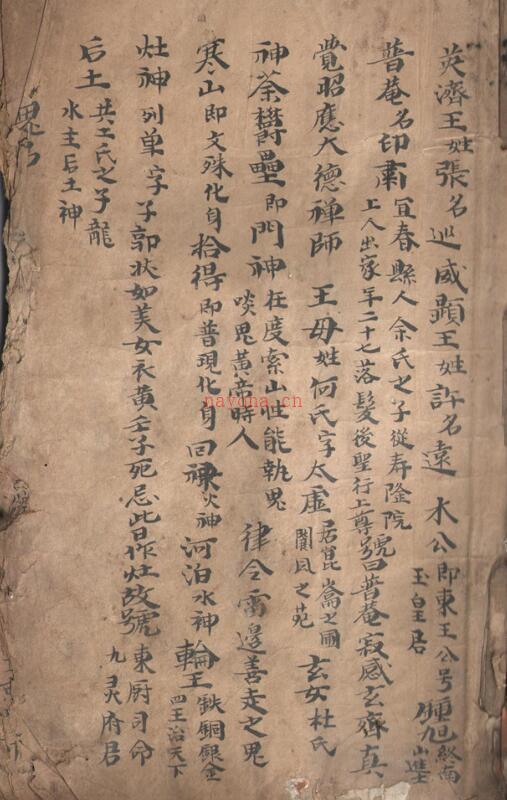 英濟王姓張名巡威顯王姓許名遠 木公即東王公号玉皇君 鍾馗終南山進士
普菴名印肅宜春縣人余氏之子從寿隆院上人出家年二十七落髮後聖行上尊號曰普菴寂感玄齊真
覺昭應大德禅師 王母姓何氏字太虛居崑崙之圃閬风之苑 玄女杜氏
神荼欝壘即門神在度索山性能執鬼啖鬼黃帝時人 律令雷邊善走之鬼
寒山即文殊化身拾得即普現化身回祿火神河泊水神 輪王鉄銅銀金四王治天下
灶神列单字子郭状如美女衣黄壬子死忌此日作灶故號東厨司命九灵府君
后土共工氏之子龍水主后土神
nayona.cn